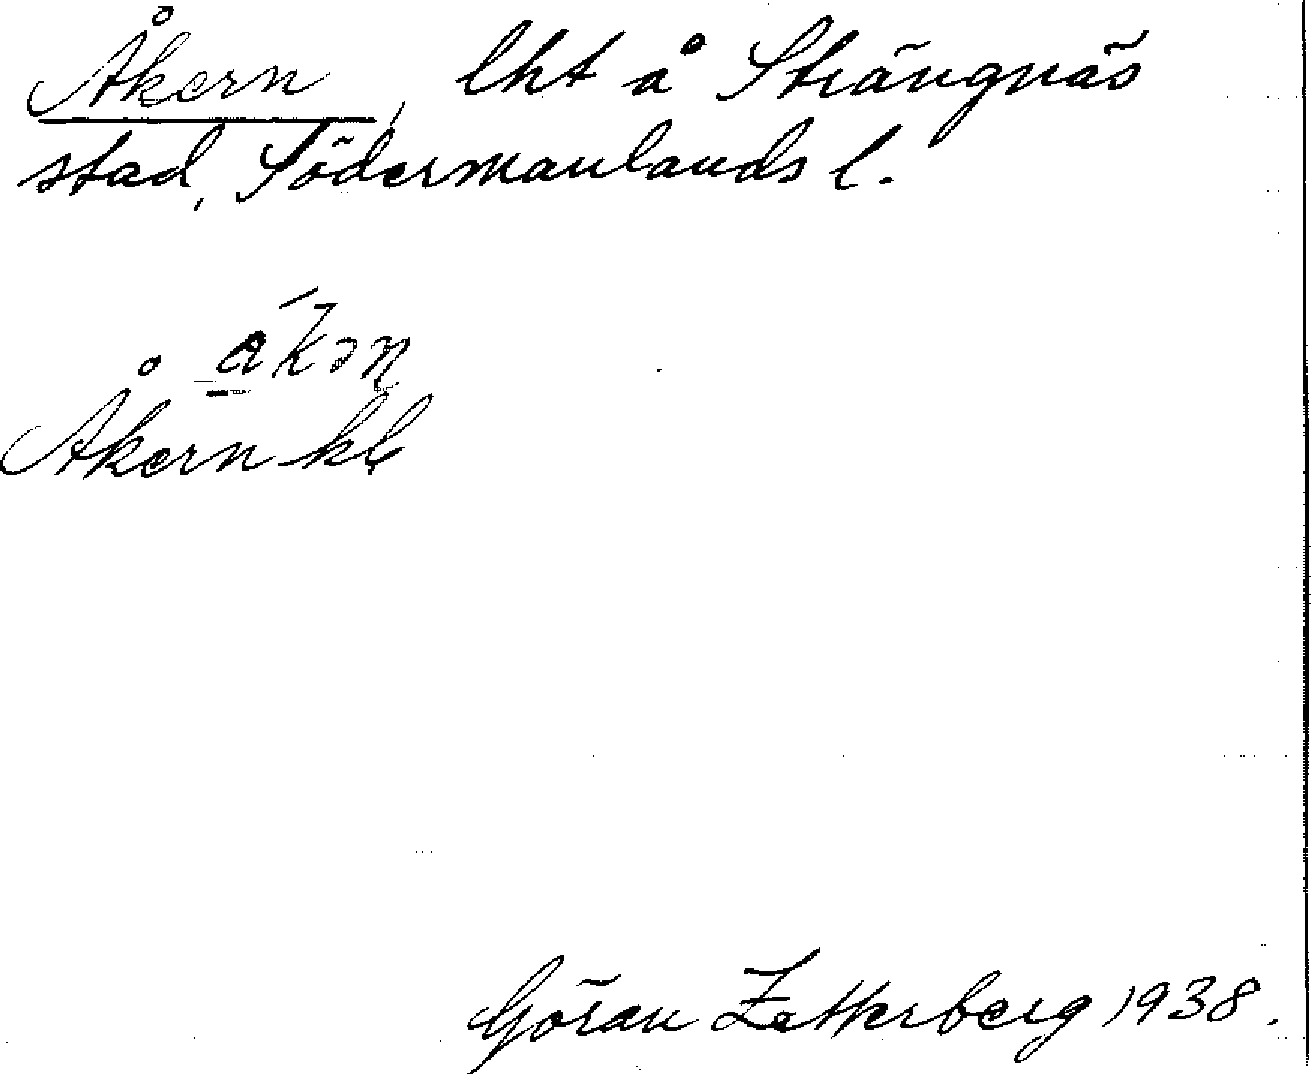 Åkern, lht å Strängnäs
stad, Södermanlands l.
Åkern kl
Göran Zetterberg 1938.